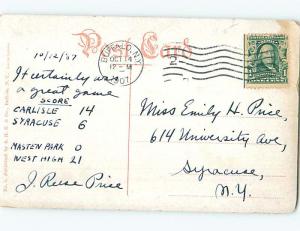 Post Card
BUFFALO, N.Y.
OCT 14
12-M
1907
10/12/07
It certainly was
a great game
SCORE
CARLISLE 14
SYRACUSE 6
MASTEN PARK 0
WEST HIGH 21
J. Reese Price
Miss Emily H. Price,
614 University Ave,
Syracuse,
N.Y.